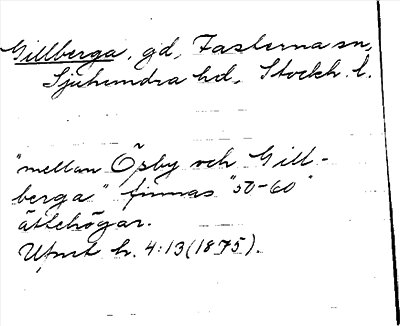 Gillberga, gd, Fasterna sn,
Sjuhundra hd, Stockh. l.
"mellan Ösby och Gill-
berga" finnas "50-60"
ättehögar.
Upmt h. 4:13 (1875).